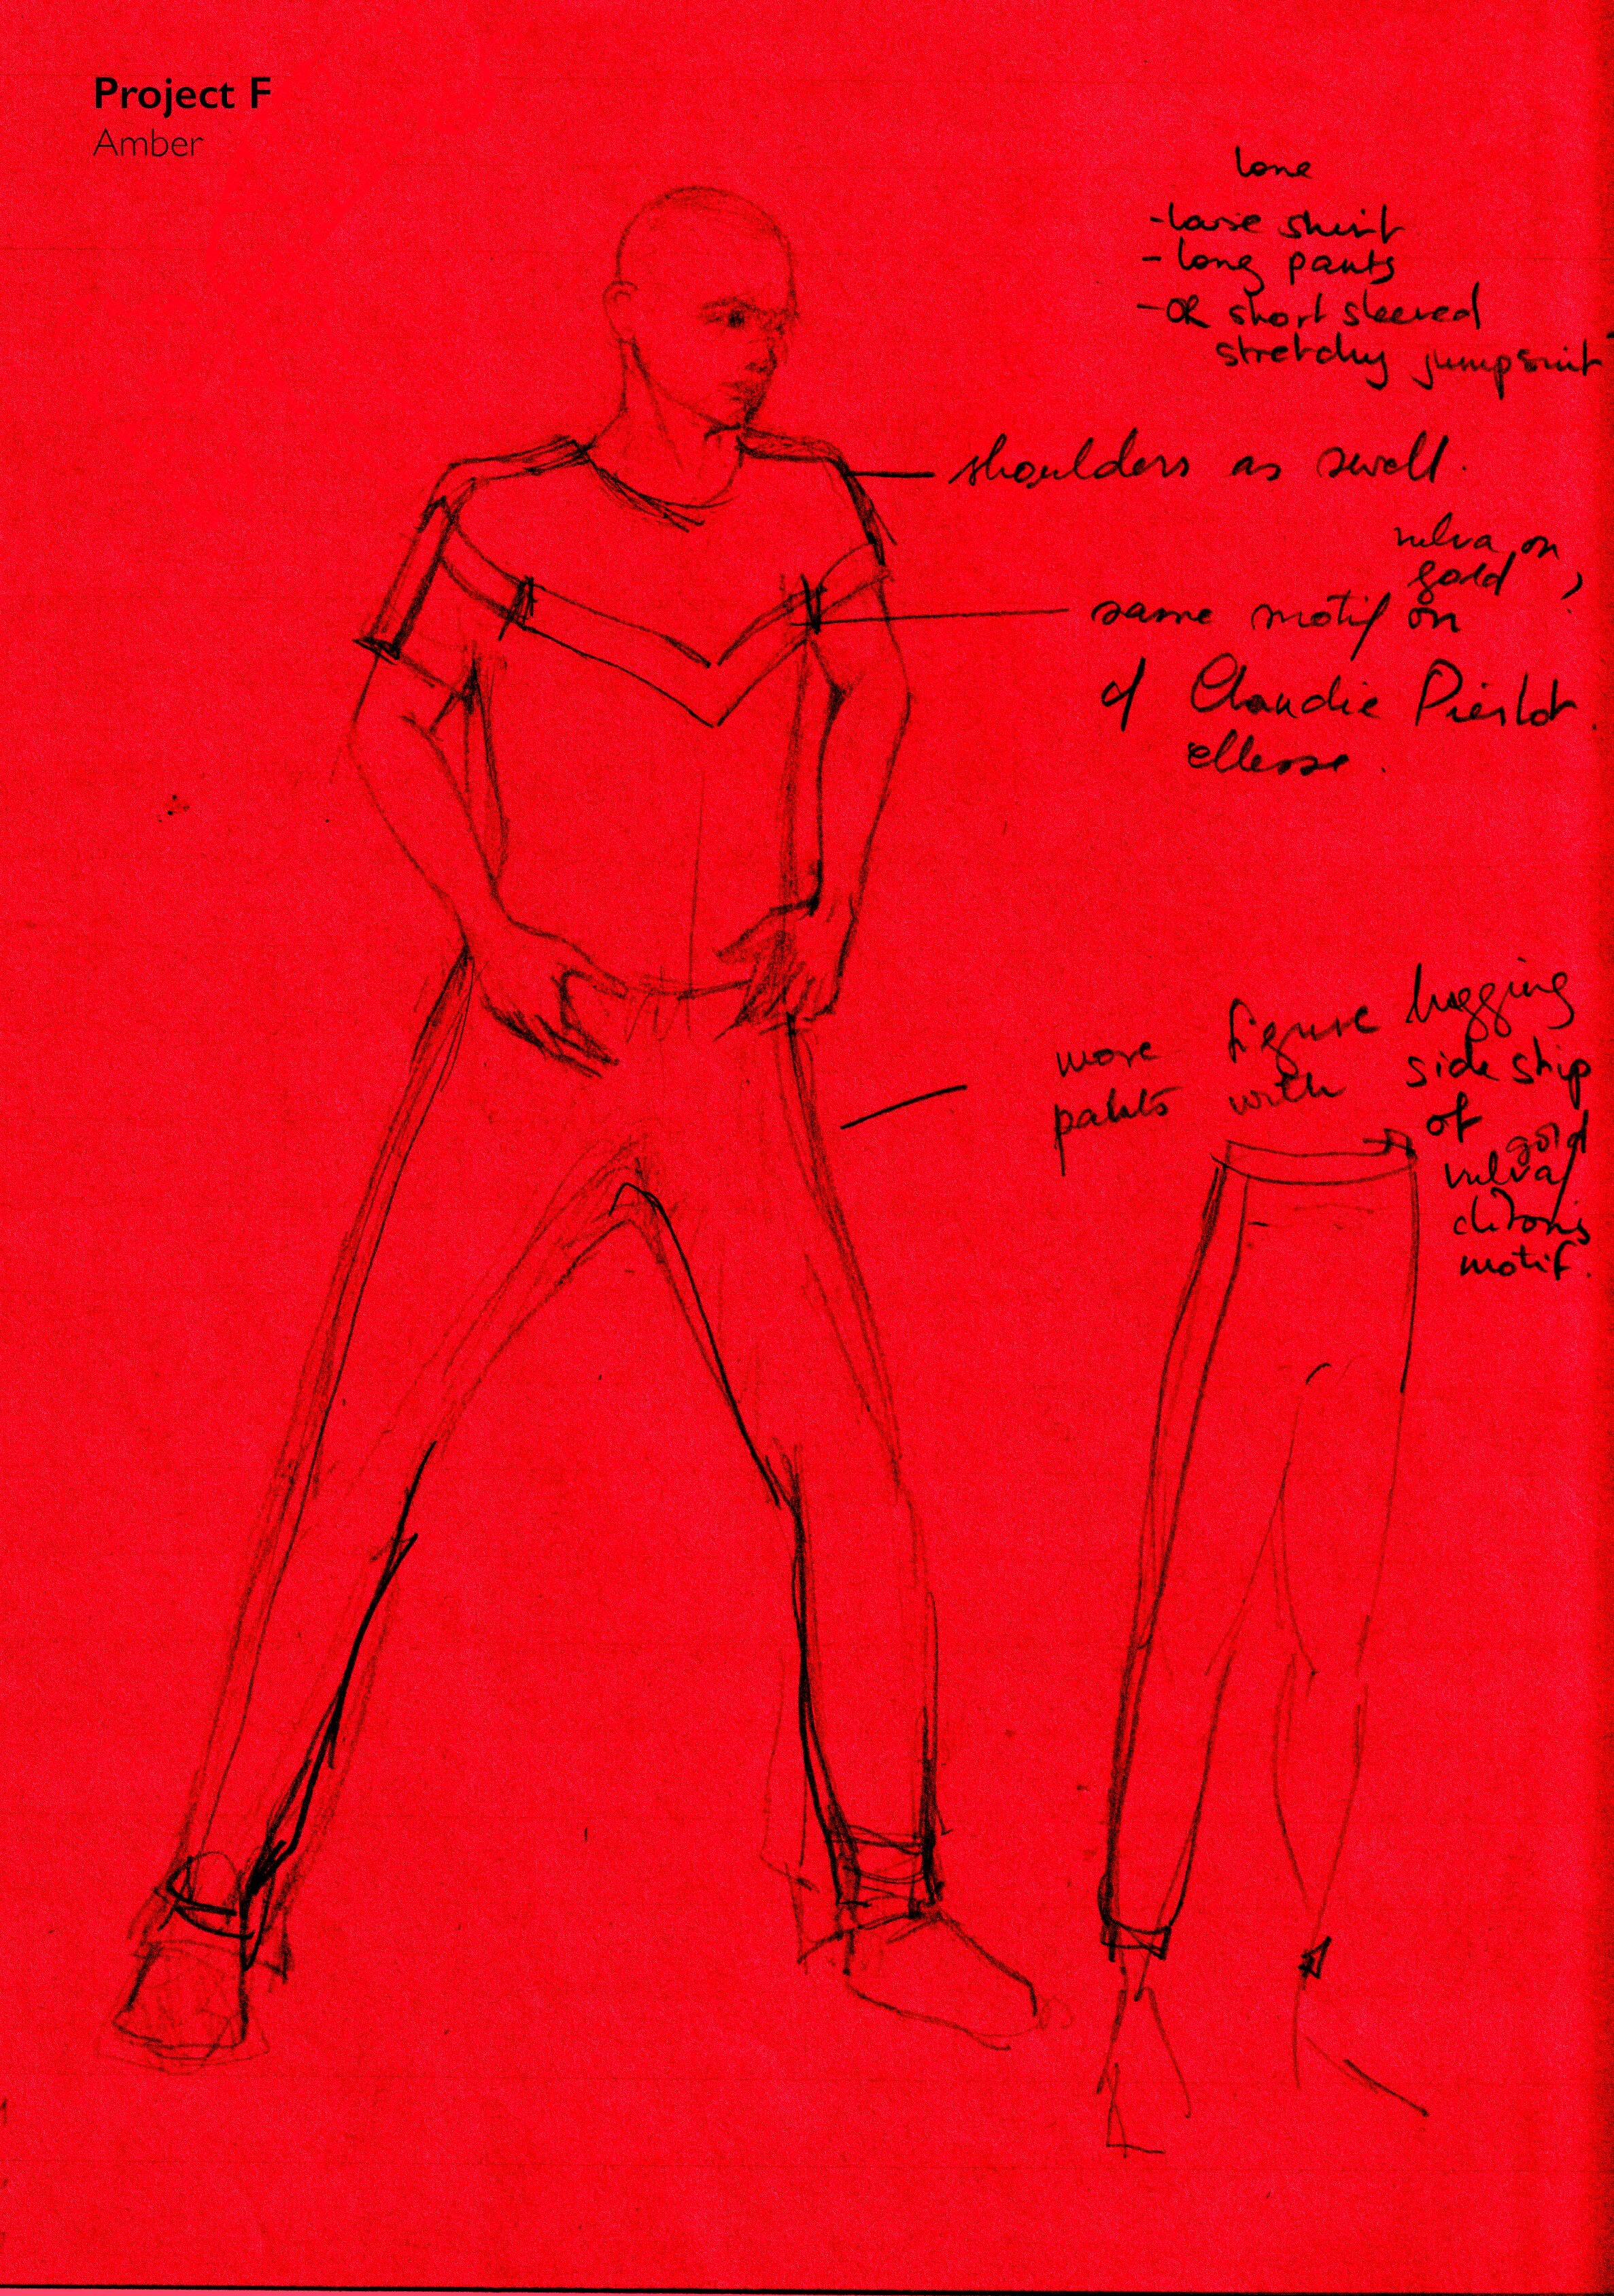 Project F
Amber
lone
- loose shirt
- long pants
- OR short sleeved
stretchy jumpsuit
shoulders as swell.
vulva on
gold ?
same motif on
of Claudie Pierlot
ellesse.
more figure hugging
pants with side strip
of gold
vulva/
clitoris
motif.